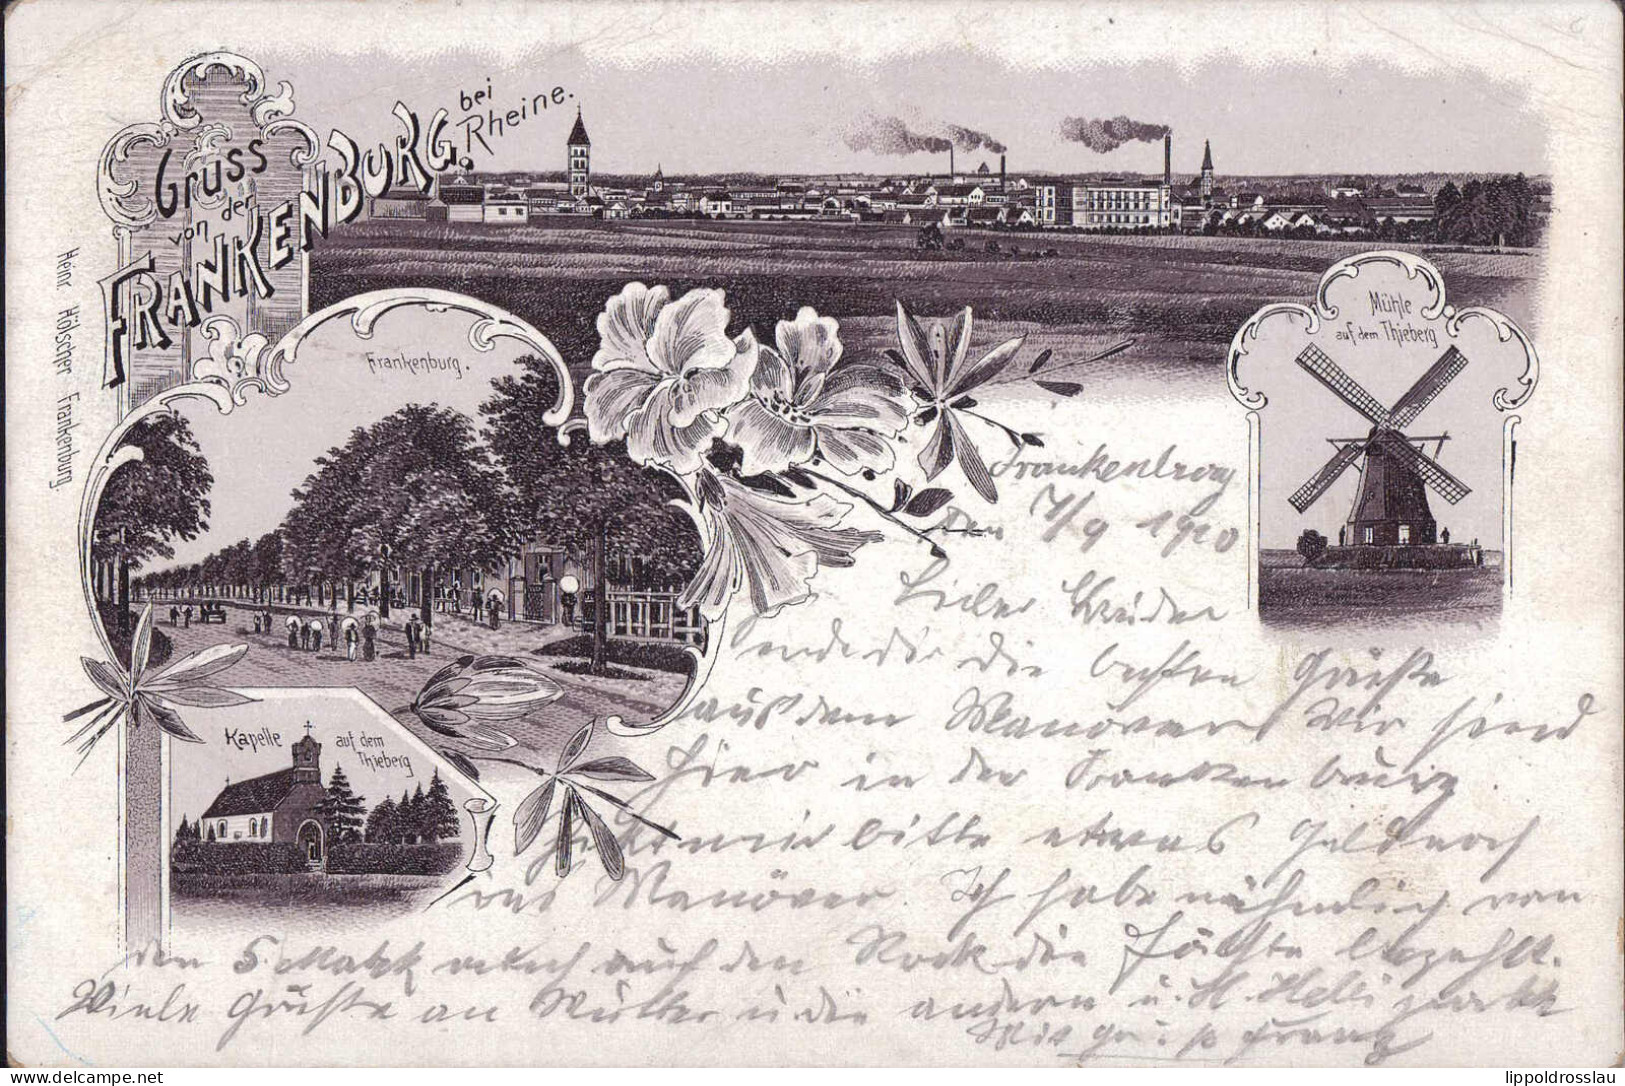 Gruss
von der
FRANKENBURG.
bei
Rheine.
Heinr. Hölscher Frankenburg.
Frankenburg.
Mühle
auf dem Thieberg
Kapelle auf dem
Thieberg
Frankenburg
den 7/9 1910
Lieber Bruder
sende dir die besten Grüße
aus dem Manöver Wir sind
hier in der Frankenburg.
Schickt mir bitte etwas Geld nach
ins Manöver. Ich habe nähmlich von
den 5 Mark auf den Rock die Hälfte bezahlt.
Viele Grüße an Mutter u die andern u. H.
Mit Gruß Franz
lippoldrosslau